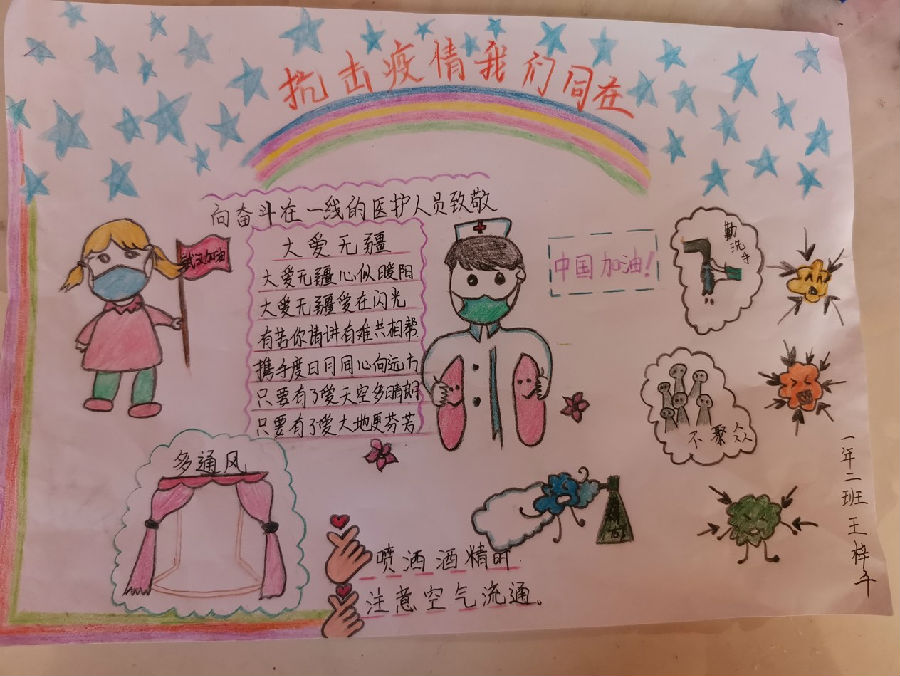 抗击疫情我们同在
向奋斗在一线的医护人员致敬
大爱无疆
大爱无疆心似暖阳
大爱无疆爱在闪光
有苦你请讲有难共相帮
携手度日同同心向远方
只要有了爱天空多晴朗
只要有了爱大地更芬芳
武汉加油
中国加油!
勤洗手
不聚众
多通风
喷洒酒精时
注意空气流通.
一年二班王梓